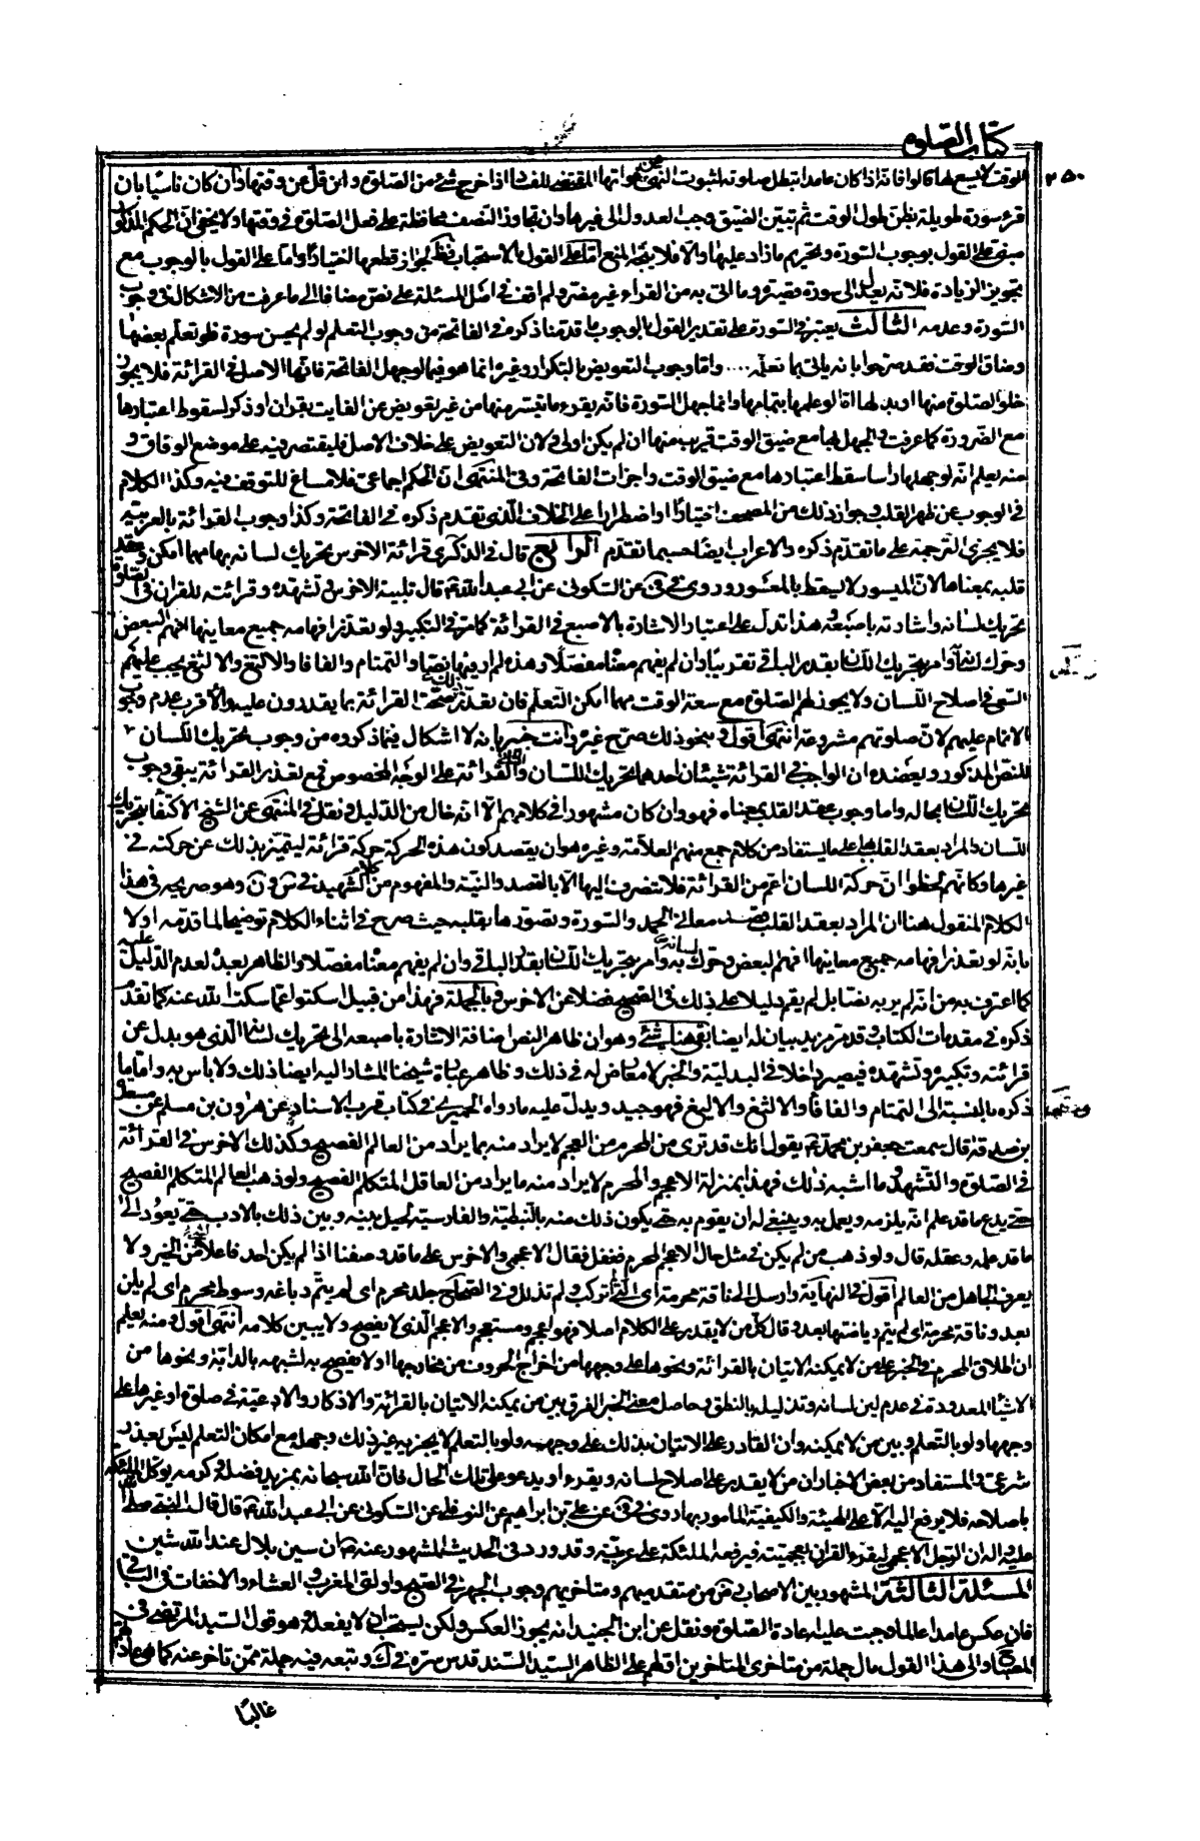 كتاب الصلوة
٢٥٠
الوقت لا يسع لها قالوا فانه اذا كان عامدا تبطل صلوته لثبوت النهى عن قرائتها المقتضى للفساد اذا خرج شئ من الصلوة وان قل عن وقتها وان كان ناسيا بان
قرء سورة طويلة بظن طول الوقت ثم تبين الضيق وجب العدول الى غيرها وان تجاوز النصف محافظة على فعل الصلوة فى وقتها ولا يخفى ان الحكم المذكور
مبنى على القول بوجوب السورة وتحريم ما زاد عليها والا فلا يتجه المنع اما على القول بالاستحباب فظ لجواز قطعها اختيارا واما على القول بالوجوب مع
تجويز الزيادة فلانه يعدل الى سورة قصيرة وما اتى به من القراءة غير مضر ولم اقف فى اصل المسئلة على نص مضافا الى ما عرفت من الاشكال فى وجوب
السورة وعدمه الثالث يعتبر فى السورة على تقدير القول بالوجوب ما قدمنا ذكره فى الفاتحة من وجوب التعلم لو لم يحسن سورة فلو تعلم بعضها
وضاق الوقت فقد صرحوا بانه ياتى بما تعلمه .... واما وجوب التعويض بالتكرار وغيره انما هو فيما لو جهل الفاتحة فانها الاصل فى القرائة فلا يجوز
خلو الصلوة منها او بدلها اما لو علمها بتمامها وانما جهل السورة فانه يقرء ما تيسر منها من غير تعويض عن الفايت بقران او ذكر لسقوط اعتبارها
مع الضرورة كما عرفت فى الجهل بها مع ضيق الوقت قريب منها ان لم يكن اولى ولان التعويض على خلاف الاصل فليقتصر فيه على موضع الوفاق و
منه يعلم انه لو جهلها راسا سقط اعتبارها مع ضيق الوقت واجزات الفاتحة وفى المنتهى ان الحكم اجماعى فلا مساغ للتوقف فيه وكذا الكلام
فى الوجوب عن ظهر القلب وجواز ذلك من المصحف اختيارا او اضطرارا على الخلاف الذى تقدم ذكره فى الفاتحة وكذا وجوب القرائة بالعربية
فلا يجزى الترجمة على ما تقدم ذكره والاعراب ايضا حسبما تقدم الرابع قال فى الذكرى قرائة الاخرس تحريك لسانه بها مهما امكن وعقد
قلبه بمعناها لان الميسور لا يسقط بالمعسور وروى فى فى عن السكونى عن ابى عبد الله ع قال تلبية الاخرس وتشهده وقرائته للقران فى الصلوة
تحريك لسانه واشارته باصبعه وهذا تدل على اعتبار الاشارة بالاصبع فى القرائة كما مر فى التكبير ولو تعذر افهامه جميع معانيها افهم البعض
وحرك لسانه وامر بتحريك اللسان بقدر الباقى تقريبا وان لم يفهم معناه مفصلا وهذه لم ار فيها نصا والتمتام والفافا والالثغ والاليغ يجب عليهم
السعى فى اصلاح اللسان ولا يجوز لهم الصلوة مع سعة الوقت مهما امكن التعلم فان تعذر ذلك صحت القرائة بما يقدرون عليه والاقرب عدم وجوب
الائتمام عليهم لان صلوتهم مشروعة انتهى اقول وبنحو ذلك صرح غيره وانت خبير بانه لا اشكال فيما ذكروه من وجوب تحريك اللسان
للنص المذكور ويعضده ان الواجب فى القرائة شيئان احدهما تحريك اللسان والثانى القرائة على الوجه المخصوص فمع تعذر القرائة يبقى وجوب
تحريك اللسان بحاله واما وجوب عقد القلب بمعناه فهو وان كان مشهورا فى كلامهم الا انه خال من الدليل ونقل فى المنتهى عن الشيخ الاكتفاء بتحريك
اللسان والمراد بعقد القلب بها على ما يستفاد من كلام جمع منهم العلامة وغيره هو ان يقصد كون هذه الحركة حركة قرائة ليتميز بذلك عن حركته فى
غيرها وكانهم لحظوا ان حركة اللسان اعم من القرائة فلا تنصرف اليها الا بالقصد والنية والمفهوم من كلام الشهيد فى س ون وهو صريحه فى هذا
الكلام المنقول هنا ان المراد بعقد القلب قصد معانى الحمد والسورة وتصورها بقلبه حيث صرح فى اثناء الكلام توضيحا لما قدمه اولا
بانه لو تعذر افهامه جميع معانيها افهم البعض وحرك لسانه به وامر بتحريك اللسان بقدر الباقى وان لم يفهم معناه مفصلا والظاهر بعده لعدم الدليل عليه
كما اعترف به من انه لم ير به نصا بل لم يقم دليلا على ذلك فى الصحيح فضلا عن الاخرس وبالجملة فهذا من قبيل اسكتوا عما سكت الله عنه كما تقدم
ذكره فى مقدمات الكتاب وقد مر مزيد بيان له ايضا بقى هنا شئ وهو ان ظاهر النص اضافة الاشارة باصبعه الى تحريك لسانه الذى هو بدل عن
قرائته وتكبيره وتشهده فيصير داخلا فى البدلية والخبر لا معارض له فى ذلك وظاهر عبارة شيخنا المشار اليه ايضا ذلك ولا باس به واما ما
ذكره بالنسبة الى التمتام والفافا والالثغ والاليغ فهو جيد ويدل عليه ما رواه الحميرى فى كتاب قرب الاسناد عن هارون بن مسلم عن مسعدة
بن صدقة قال سمعت جعفر بن محمد ع يقول انك قد ترى من المحرم من العجم لا يراد منه ما يراد من العالم الفصيح وكذلك الاخرس فى القرائة
فى الصلوة والتشهد وما اشبه ذلك فهذا بمنزلة الاعجم والمحرم لا يراد منه ما يراد من العاقل المتكلم الفصيح ولو ذهب العالم المتكلم الفصيح
حتى يدع ما قد علم انه يلزمه ويعمل به وينبغى له ان يقوم به حتى يكون ذلك منه بالنبطية والفارسية لحيل بينه وبين ذلك بالادب حتى يعود الى
ما قد علمه وعقله قال ولو ذهب من لم يكن فى مثل حال الاعجم المحرم ففعل فعال الاعجمى والاخرس على ما قد وصفنا اذا لم يكن احد فاعلا لشئ من الخير ولا
يعرف الجاهل من العالم اقول فى النهاية وارسل الى ناقة محرمة اى التى لم تركب ولم تذلل وفى الصحاح جلد محرم اى لم يتم دباغه وسوط محرم اى لم يلن
بعد وناقة محرمة اى لم يتم رياضتها بعد وقال كل من لا يقدر على الكلام اصلا فهو اعجم ومستعجم والاعجم الذى لا يفصح ولا يبين كلامه انتهى اقول ومنه يعلم
ان اطلاق المحرم فى الخبر على من لا يمكنه الاتيان بالقرائة ونحوها على وجهها من اخراج الحروف من مخارجها او لا يفصح به لشبهه بالدابة ونحوها من
الاشياء المعدودة فى عدم لين لسانه وتذليله بالنطق وحاصل معنى الخبر الفرق بين من يمكنه الاتيان بالقرائة والاذكار والادعية فى صلوة او غيرها على
وجهها ولو بالتعلم وبين من لا يمكنه وان القادر على الاتيان بذلك على وجهه ولو بالتعلم لا يجزيه غير ذلك وجهله مع امكان التعلم ليس بعذر
شرعى والمستفاد من بعض الاخبار ان من لا يقدر على اصلاح لسانه ويقرء او يدعو على تلك الحال فان الله سبحانه بمزيد فضله وكرمه يوكل الملئكة
باصلاحه فلا يرفع اليه الا على الهيئة والكيفية المامور بها روى فى فى عن على بن ابراهيم عن النوفلى عن السكونى عن ابى عبد الله ع قال قال النبى صلى الله
عليه واله ان الرجل الاعجمى ليقرء القران بعجميته فيرفعه الملئكة على عربيته وقد ورد فى الحديث المشهور عنه ص ان سين بلال عند الله شين
المسئلة الثالثة المشهور بين الاصحاب رض من متقدميهم ومتاخريهم وجوب الجهر فى الصبح واولتى المغرب والعشاء والاخفات فى البواقى
فان عكس عامدا عالما وجبت عليه اعادة الصلوة ونقل عن ابن الجنيد انه يجوز العكس ولكن يستحب ان لا يفعله وهو قول السيد المرتضى فى
المصباح والى هذا القول مال جملة من متاخرى المتاخرين اولهم على الظاهر السيد السند قدس سره فى ك وتبعه فيه جملة ممن تاخر عنه كما هى عادتهم
غالبا